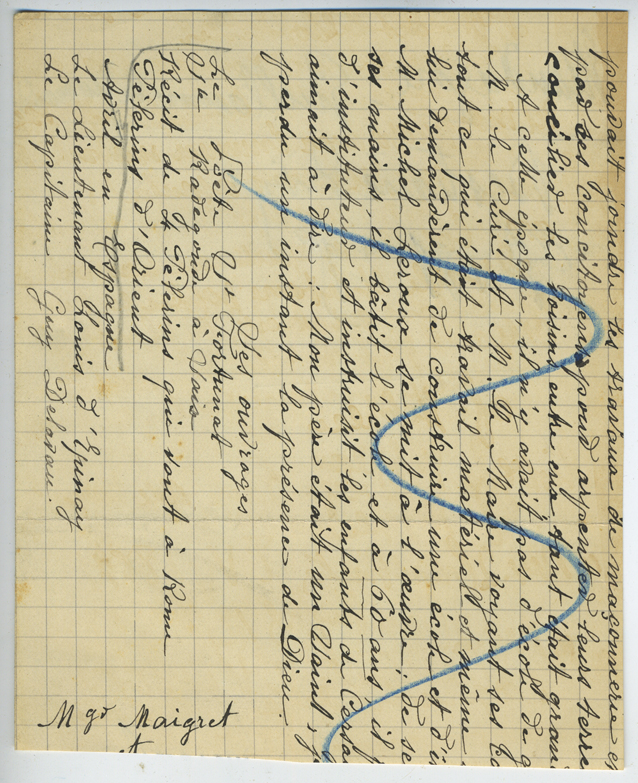 pouvait joindre les travaux de maçonnerie
par ses concitoyens pour arpenter leurs terre
concilier les voisins entre eux tant était gran
A cette époque, il n'y avait pas d'école de
M. le Curé et M. le Maire voyant ses
tout ce qui était travail matériel et même
lui demandèrent de construire une école et d'
M. Michel se mit à l'œuvre, de se
ses mains, il bâtit l'école et à 60 ans il
d'instituteur et instruisit les enfants de
aimait à dire: Mon père était un Saint,
perdu un instant la présence de Dieu.
Ses ouvrages
Le St Fortunat
Ste Radegonde à Vais
Récit de 4 Pèlerins qui vont à Rome
Pèlerins d'Orient
Avril en Espagne
Le Lieutenant Louis d'Epinay
Le Capitaine Guy Delavau.
Mgr Maigret
et